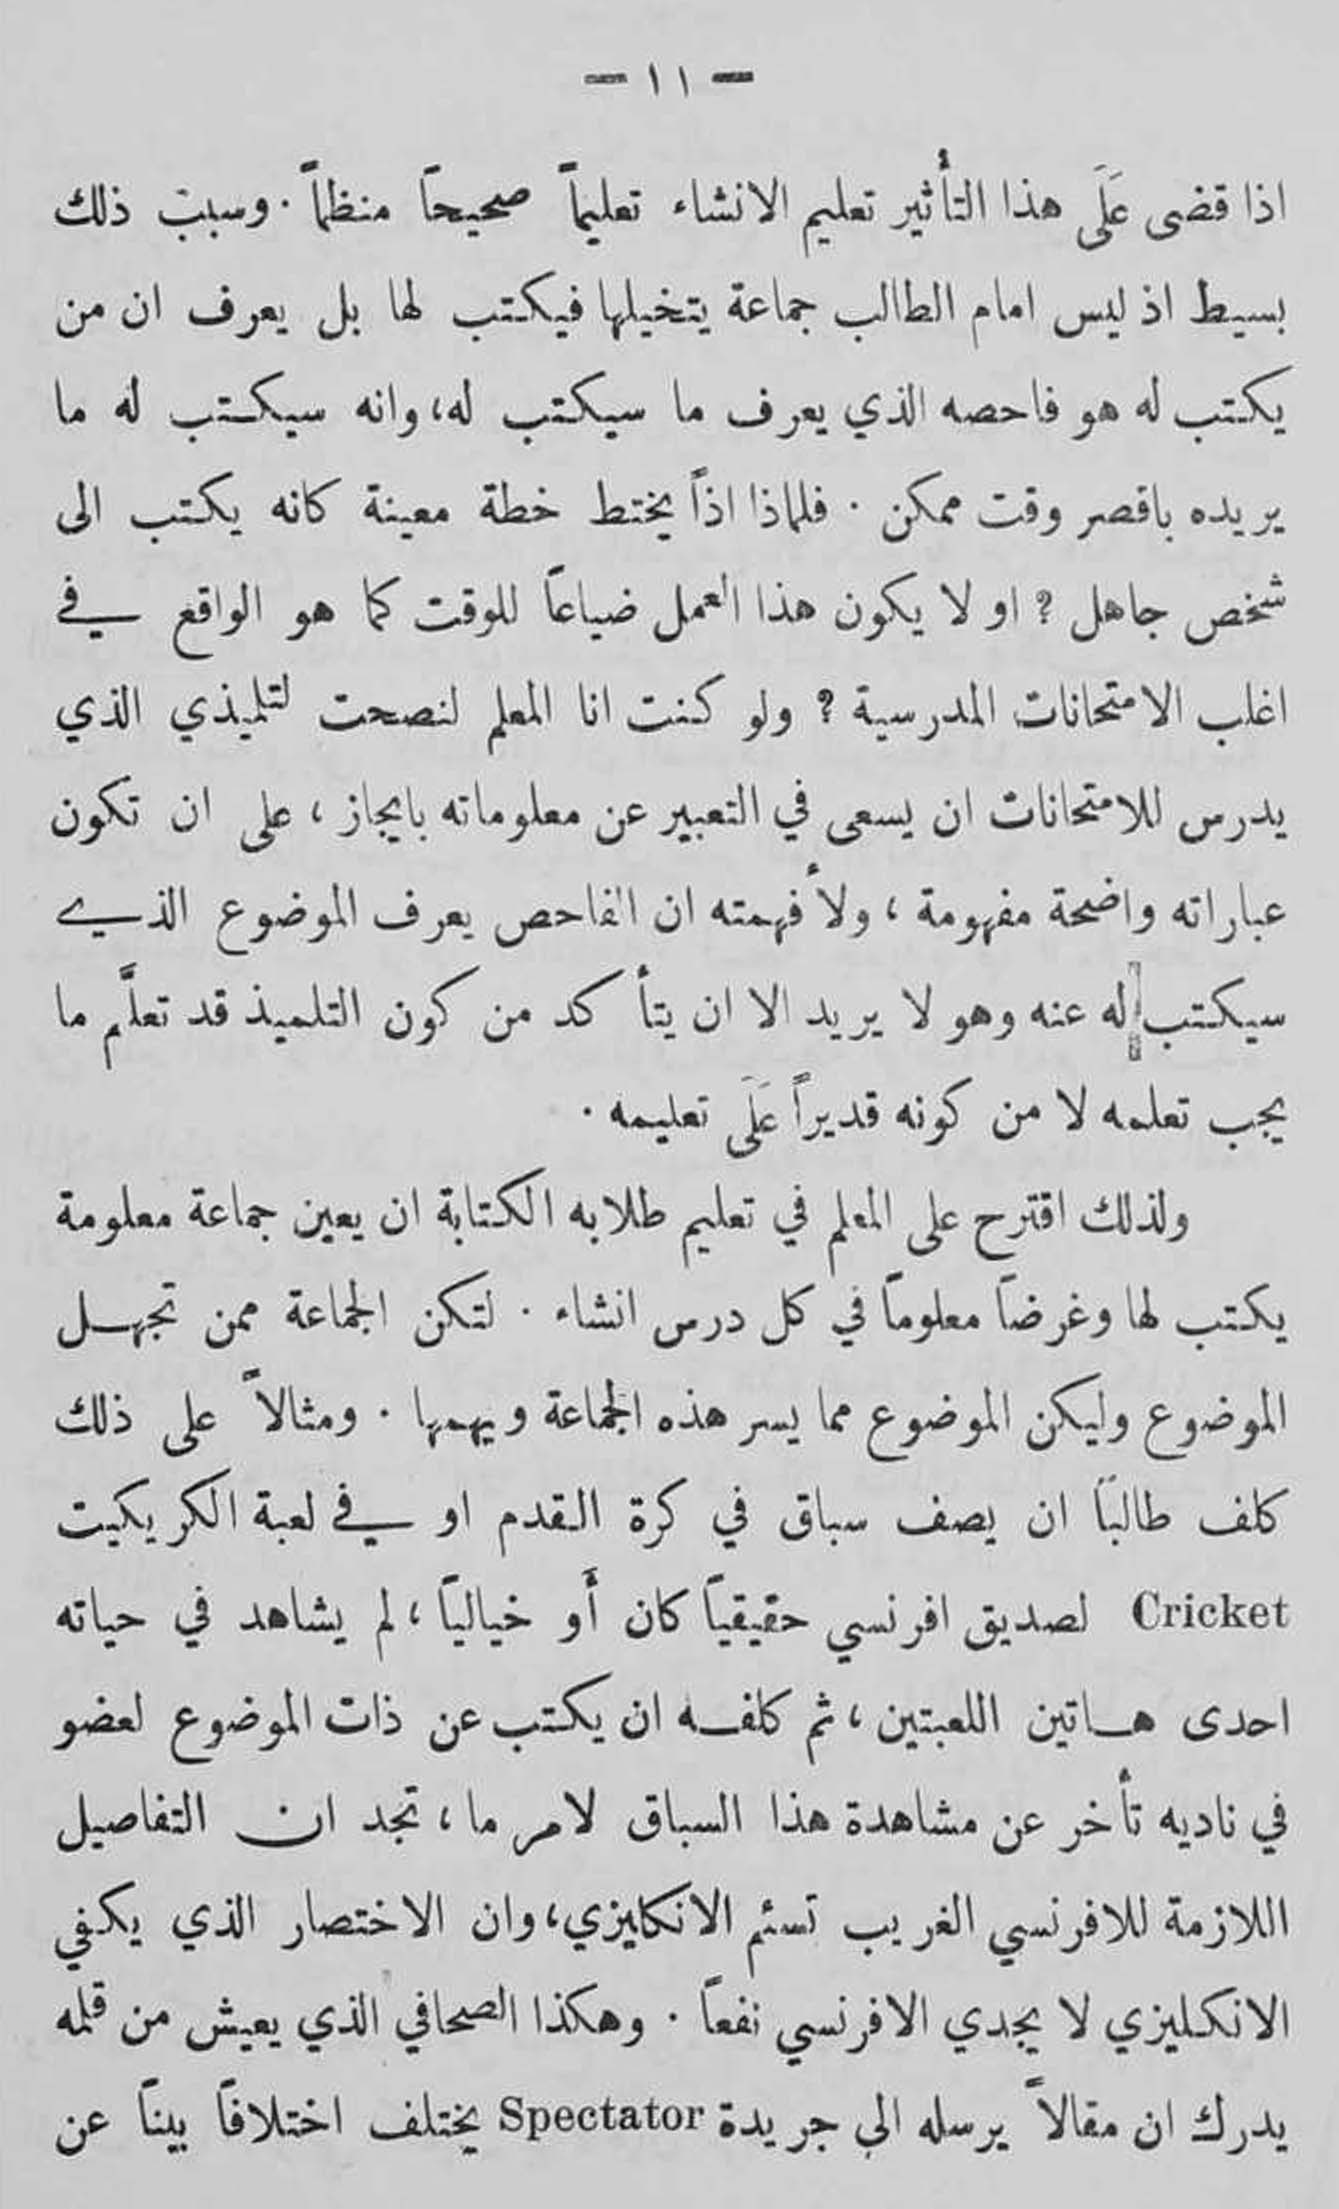 — ١١ —
اذا قضى عَلَى هذا التأثير تعليم الانشاء تعليماً صحيحاً منظماً . وسبب ذلك
بسيط اذ ليس امام الطالب جماعة يتخيلها فيكتب لها بل يعرف ان من
يكتب له هو فاحصه الذي يعرف ما سيكتب له، وانه سيكتب له ما
يريده باقصر وقت ممكن . فلماذا اذاً يختط خطة معينة كانه يكتب الى
شخص جاهل ؟ او لا يكون هذا العمل ضياعاً للوقت كما هو الواقع في
اغلب الامتحانات المدرسية ؟ ولو كنت انا المعلم لنصحت لتلميذي الذي
يدرس للامتحانات ان يسعى في التعبير عن معلوماته بايجاز ، على ان تكون
عباراته واضحة مفهومة ، ولأفهمته ان الفاحص يعرف الموضوع الذي
سيكتب له عنه وهو لا يريد الا ان يتأكد من كون التلميذ قد تعلَّم ما
يجب تعلمه لا من كونه قديراً عَلَى تعليمه .
ولذلك اقترح على المعلم في تعليم طلابه الكتابة ان يعين جماعة معلومة
يكتب لها وغرضاً معلوماً في كل درس انشاء . لتكن الجماعة ممن تجهل
الموضوع وليكن الموضوع مما يسر هذه الجماعة ويهمها . ومثالاً على ذلك
كلف طالباً ان يصف سباق في كرة القدم او في لعبة الكريكيت
Cricket لصديق افرنسي حقيقياً كان أو خيالياً ، لم يشاهد في حياته
احدى هاتين اللعبتين ، ثم كلفه ان يكتب عن ذات الموضوع لعضو
في ناديه تأخر عن مشاهدة هذا السباق لامر ما ، تجد ان التفاصيل
اللازمة للافرنسي الغريب تسئم الانكليزي، وان الاختصار الذي يكفي
الانكليزي لا يجدي الافرنسي نفعاً . وهكذا الصحافي الذي يعيش من قلمه
يدرك ان مقالاً يرسله الى جريدة Spectator يختلف اختلافاً بيناً عن